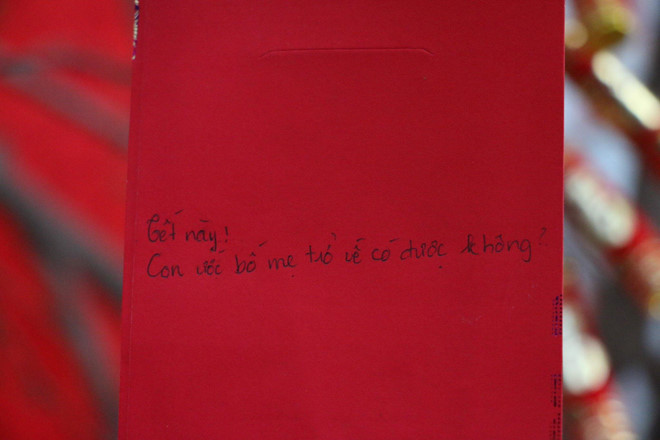 Tết này!
Con ước bố mẹ trở về có được không?